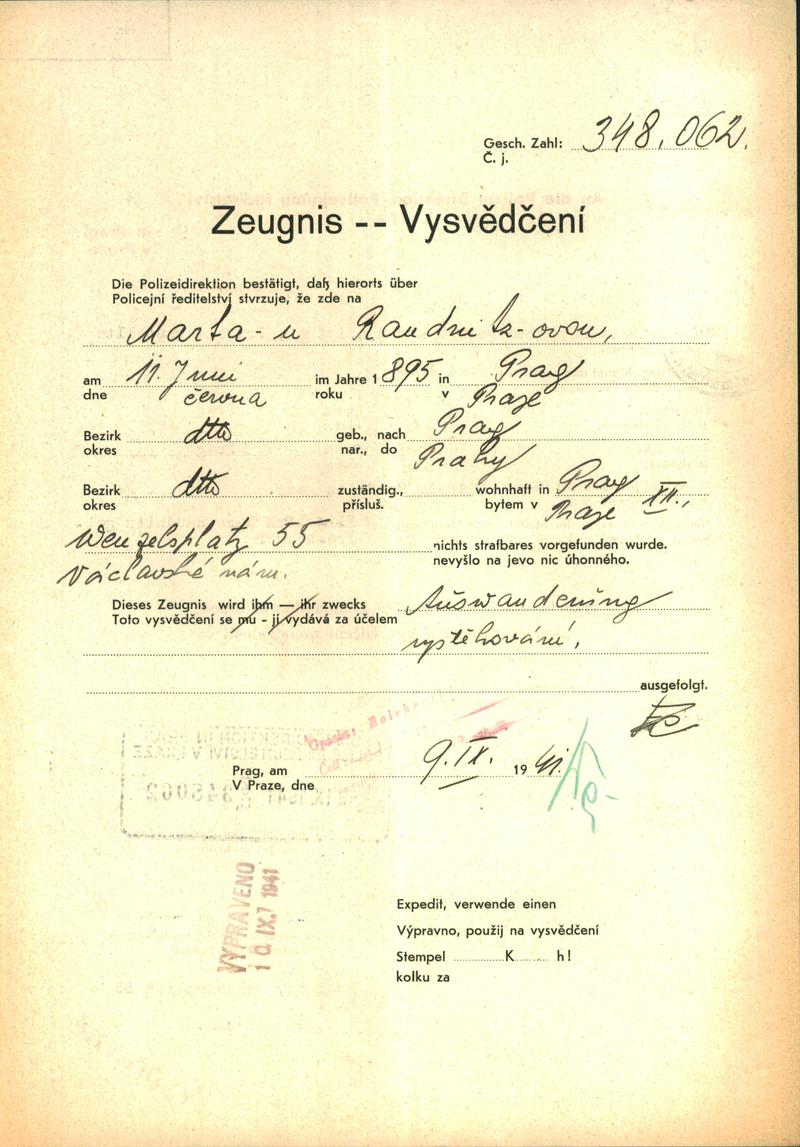 Gesch. Zahl: 348.062.
Č. j.
Zeugnis -- Vysvědčení
Die Polizeidirektion bestätigt, daß hierorts über
Policejní ředitelství stvrzuje, že zde na
Marta-u Raudnitz-ovou,
am 11. Juni im Jahre 1895 in Prag
dne června roku v Praze
Bezirk dtto geb., nach Prag
okres nar., do Prahy
Bezirk dtto zuständig., wohnhaft in Prag XII.,
okres přísluš. bytem v Praze
Wenzelsplatz 55 nichts strafbares vorgefunden wurde.
Václavské nám. nevyšlo na jevo nic úhonného.
Dieses Zeugnis wird ihm — ihr zwecks Auswanderung
Toto vysvědčení se mu - jí vydává za účelem vystěhování,
ausgefolgt.
Prag, am 9. IX. 1941.
V Praze, dne
VYPRAVENO
10. IX. 1941
Expedit, verwende einen
Výpravno, použij na vysvědčení
Stempel K h!
kolku za